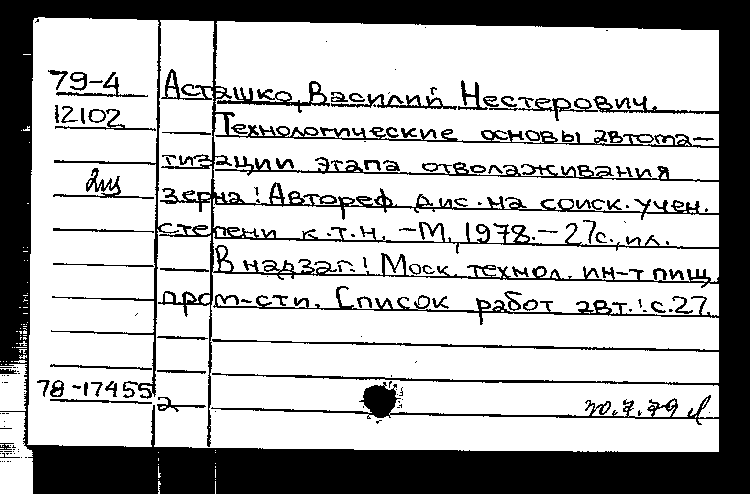 79-4 Асташко, Василий Нестерович.
12102 Технологические основы автома-
тизации этапа отволаживания
2ш зерна: Автореф. дис. на соиск. учен.
степени к.т.н. -М., 1978.-27с., ил.
В надзаг.: Моск. технол. ин-т пищ.
пром-сти. Список работ авт.: с.27.
78-17455 2
20.7.79